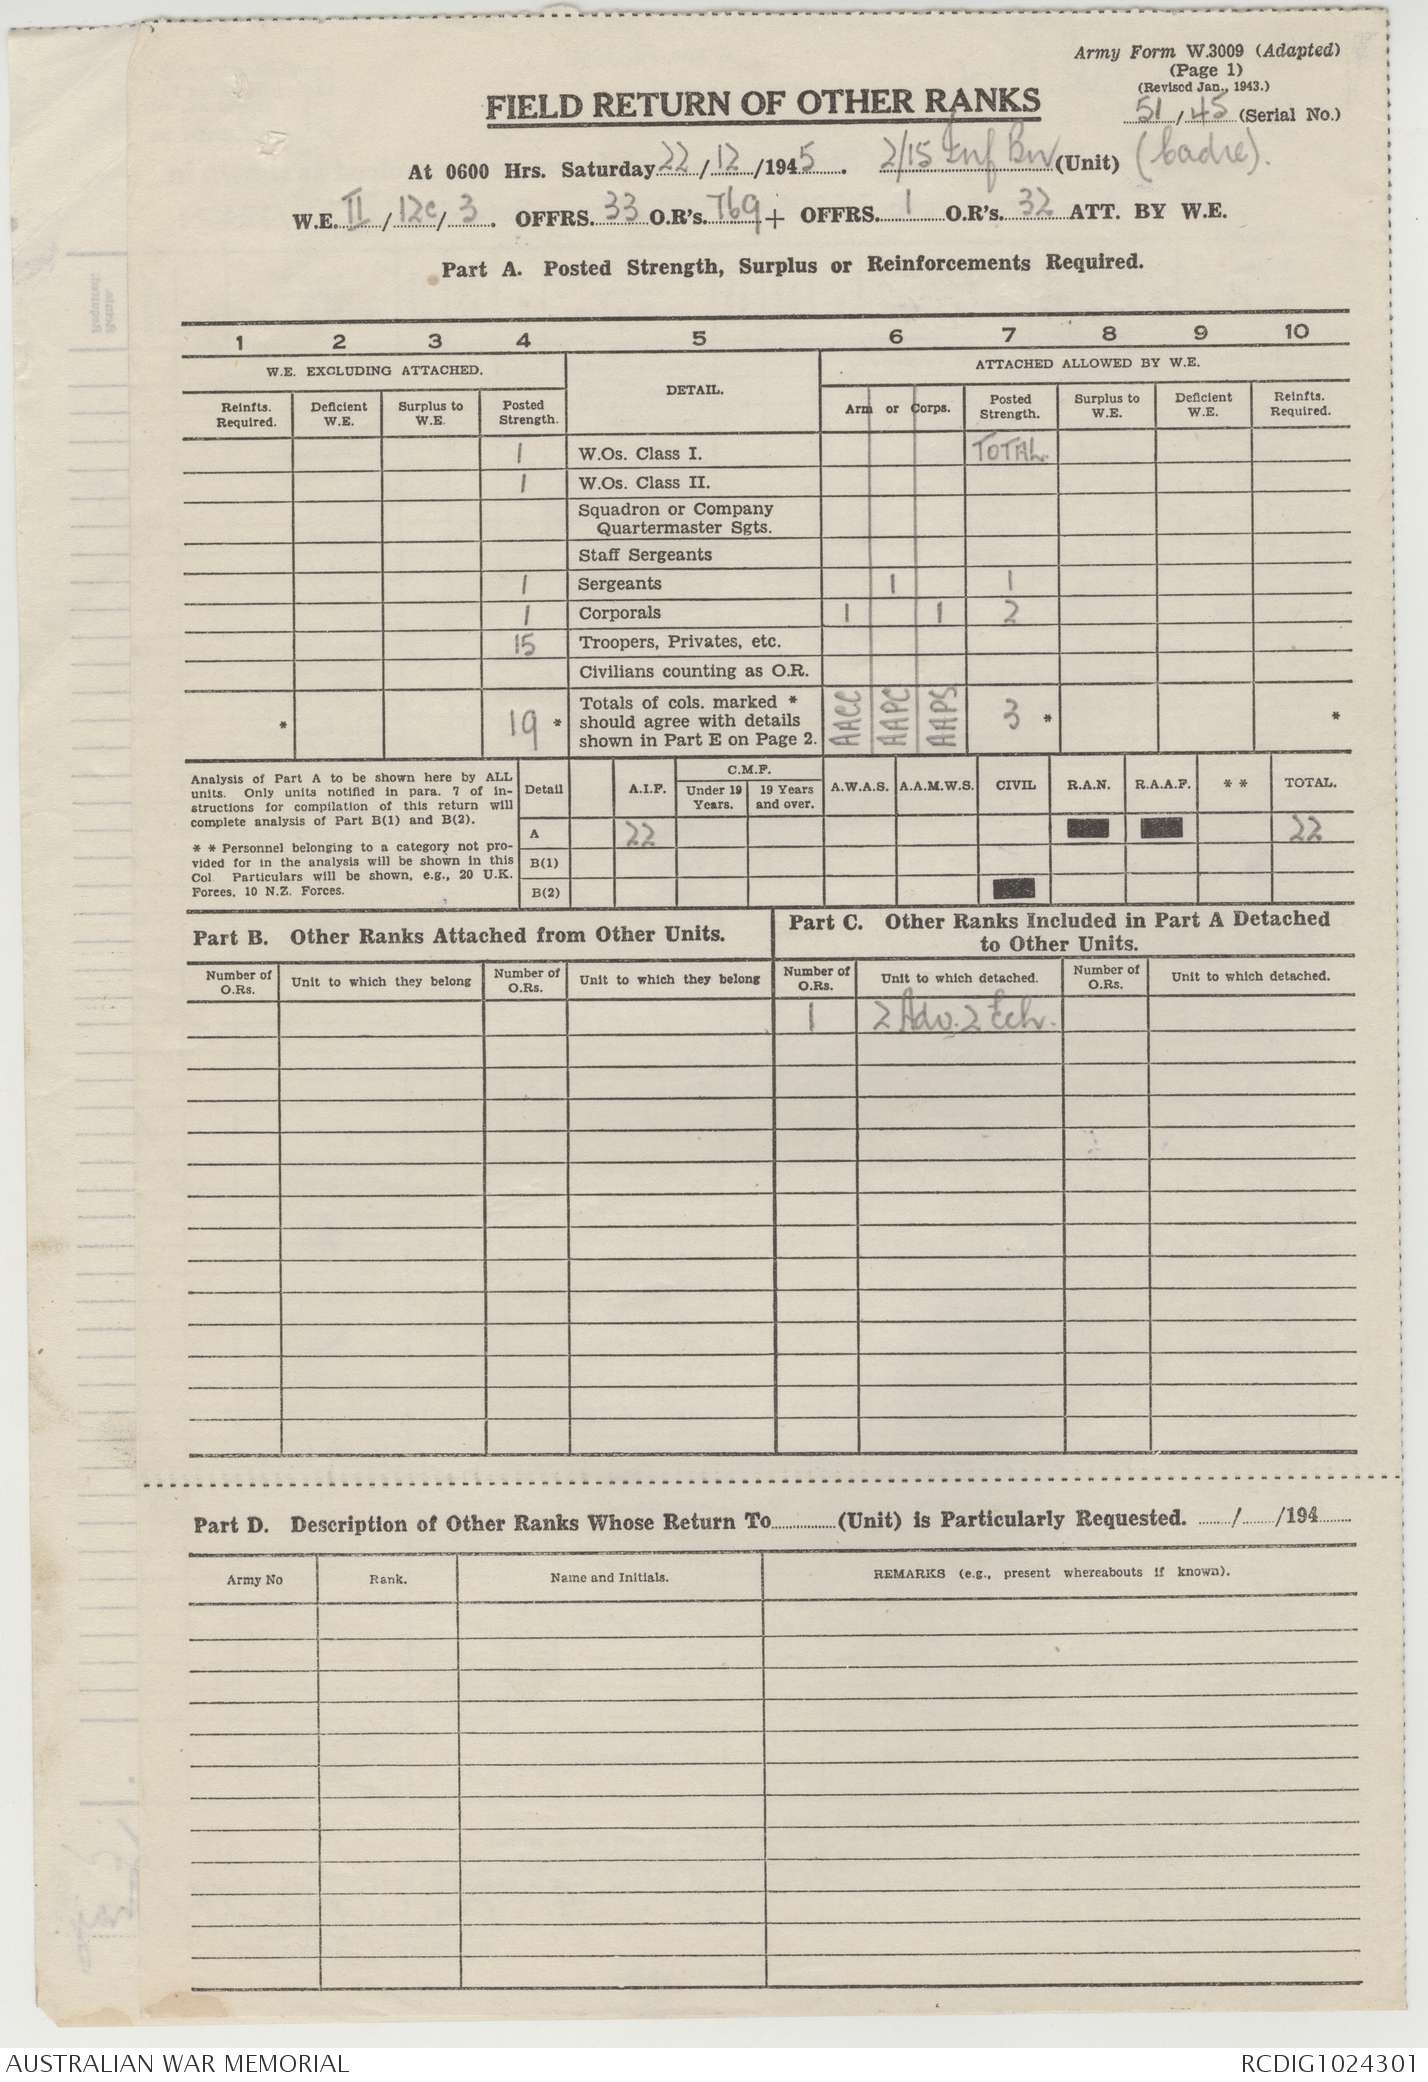 Army Form W.3009 (Adapted)
(Page 1)
(Revised Jan., 1943.)
51/45 (Serial No.)
FIELD RETURN OF OTHER RANKS
At 0600 Hrs. Saturday 22/12/1945. 2/15 Inf Bn (Unit) (Cadre).
W.E. II/12c/3. OFFRS. 33 O.R's. 769 + OFFRS. 1 O.R's. 32 ATT. BY W.E.
Part A. Posted Strength, Surplus or Reinforcements Required.
1 2 3 4 5 6 7 8 9 10
W.E. EXCLUDING ATTACHED. DETAIL. ATTACHED ALLOWED BY W.E.
Reinfts. Required. Deficient W.E. Surplus to W.E. Posted Strength. Arm or Corps. Posted Strength. Surplus to W.E. Deficient W.E. Reinfts. Required.
1 W.Os. Class I. TOTAL.
1 W.Os. Class II.
Squadron or Company
Quartermaster Sgts.
Staff Sergeants
1 Sergeants 1 1
1 Corporals 1 1 2
15 Troopers, Privates, etc.
Civilians counting as O.R.
* 19 * Totals of cols. marked * should agree with details shown in Part E on Page 2. AACC AAPC AAPS 3 * *
Analysis of Part A to be shown here by ALL
units. Only units notified in para. 7 of in-
structions for compilation of this return will
complete analysis of Part B(1) and B(2).
* * Personnel belonging to a category not pro-
vided for in the analysis will be shown in this
Col. Particulars will be shown, e.g., 20 U.K.
Forces, 10 N.Z. Forces.
Detail A.I.F. C.M.F. Under 19 Years. 19 Years and over. A.W.A.S. A.A.M.W.S. CIVIL R.A.N. R.A.A.F. * * TOTAL.
A 22 22
B(1)
B(2)
Part B. Other Ranks Attached from Other Units.
Part C. Other Ranks Included in Part A Detached
to Other Units.
Number of O.Rs. Unit to which they belong Number of O.Rs. Unit to which they belong Number of O.Rs. Unit to which detached. Number of O.Rs. Unit to which detached.
1 2 Adv. 2 Ech.
Part D. Description of Other Ranks Whose Return To (Unit) is Particularly Requested. / /194
Army No Rank. Name and Initials. REMARKS (e.g., present whereabouts if known).
AUSTRALIAN WAR MEMORIAL RCDIG1024301